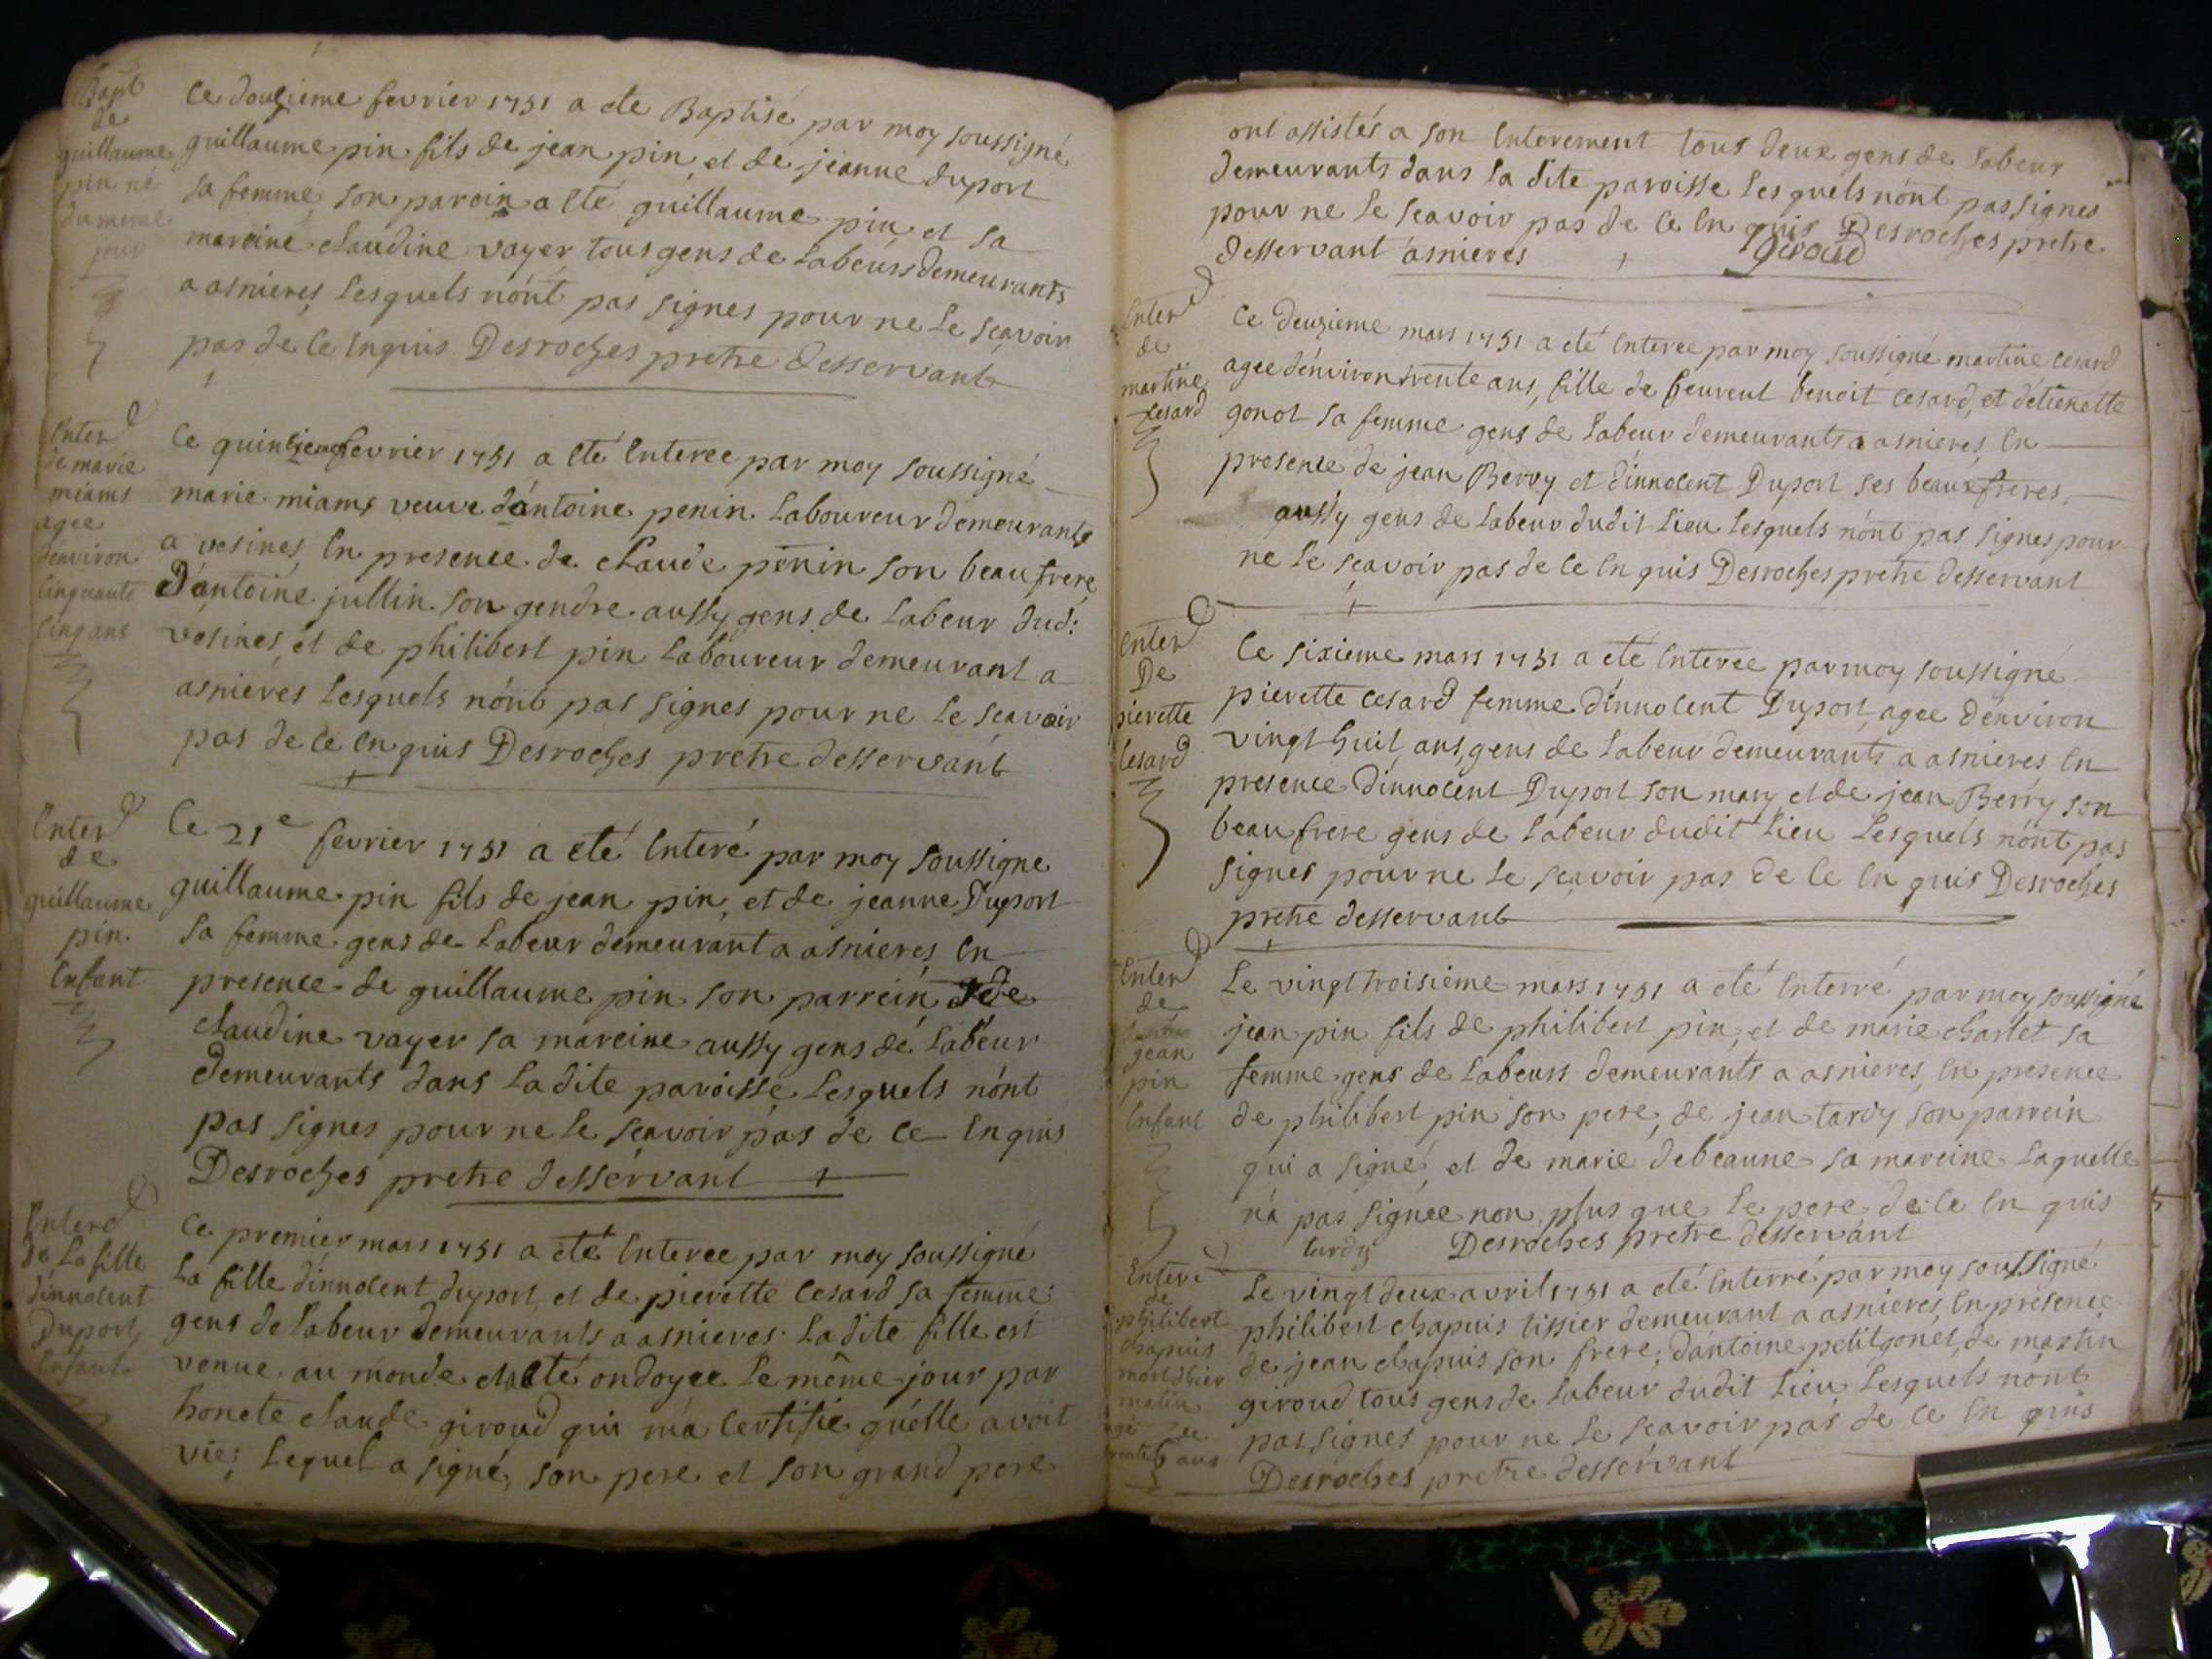 Bapt
de
guillaume
pin né
du meme
jour
Ce douzieme fevrier 1751 a ete Baptisé par moy soussigné
guillaume pin fils de jean pin, et de jeanne duport
sa femme, son paroin a ete guillaume pin et sa
mareine claudine vayer tous gens de Labeurs demeurants
a asnieres, Lesquels nónt pas signes pour ne Le scavoir
pas de ce Enquis Desroches pretre desservant
Enter
de marie
miams
agee
denviron
cinquante
cinq ans
Ce quinzieme fevrier 1751 a eté Enteree par moy soussigné
marie miams veuve dántoine penin Laboureur demeurants
a vesines, En presence de claude penin son beaufrere
Dántoine jullin son gendre aussy gens de Labeur dud:
vesines, et de philibert pin Laboureur demeurant a
asniéres Lesquels nónt pas signes pour ne Le scavoir
pas de ce enquis Desroches pretre desservant
Enter
de
guillaume
pin
Enfant
Ce 21e fevrier 1751 a eté Enteré par moy soussigne
guillaume pin fils de jean pin, et de jeanne Duport
sa femme gens de Labeur demeurant a asnieres, En
presence de guillaume pin son parrein, de
claudine vayer sa mareine aussy gens de Labeur
Demeurants dans La dite paroisse Lesquels nónt
pas signes pour ne Le scavoir pas de ce Enquis
Desroches pretre desservant
Enter
de La fille
dínnocent
Duport,
Enfant
Ce premier mars 1751 a eté Enteree par moy soussigné
La fille dínnocent duport, et de pierette Cesard sa femme:
gens de Labeur demeurants a asnieres. La dite fille est
venue au monde et a eté ondoyee Le même jour par
honete claude giroud qui má Certifie quélle avoit
vie; Lequel a signé, son pere et son grand pere
ont assistés a son Enterement tous deux gens de Labeur
Demeurants dans La dite paroisse Lesquels nónt pas signes
pour ne Le scavoir pas de ce En quis Desroches pretre
desservant asnieres giroud
Enter
de
martine
Cesard
Ce deuzieme mars 1751 a eté Enteree par moy soussigné martine Cesard
agee dénviron trente ans, fille de feu benoit Cesard, et détienette
gonot sa femme gens de Labeur demeurants a asnieres, En
presence de jean Berry et dínnocent Duport ses beaux freres
aussy gens de Labeur dudit Lieu Lesquels nónt pas signes pour
ne Le scavoir pas de ce En quis Desroches pretre desservant
Enter
De
pierette
Cesard
Ce sixieme mars 1751 a eté Enteree par moy soussigné
pierette Cesard femme dínnocent Duport, agee dénviron
vingt huit, ans, gens de Labeur demeurants a asnieres En
presence dínnocent Duport son mary, et de jean Berry son
beau frere gens de Labeur dudit Lieu Lesquels nónt pas
signes pour ne Le scavoir pas de ce En quis Desroches
pretre desservant
Enter
de
jean
pin
Enfant
Le vingt troisieme mars 1751 a eté Enterré par moy soussigné
jean pin fils de philibert pin, et de marie charlet sa
femme gens de Labeurs demeurants a asnieres, En presence
de philibert pin son pere, de jean tardy son parrein
qui a signé, et de marie debeaune sa mareine Laquelle
ná pas signée non plus que Le pere de ce En quis
tardy Desroches pretre desservant
Enteré
de
philibert
chapuis
mort hier
matin
agé de
ans
Le vingt deux avril 1751 a eté Enterré par moy soussigné
philibert chapuis tissier demeurant a asnieres, En présence
de jean chapuis son frere, dántoine petitgonet, de martin
giroud tous gens de Labeur dudit Lieu Lesquels nónt
pas signes pour ne Le scavoir pas de ce En quis
Desroches pretre desservant